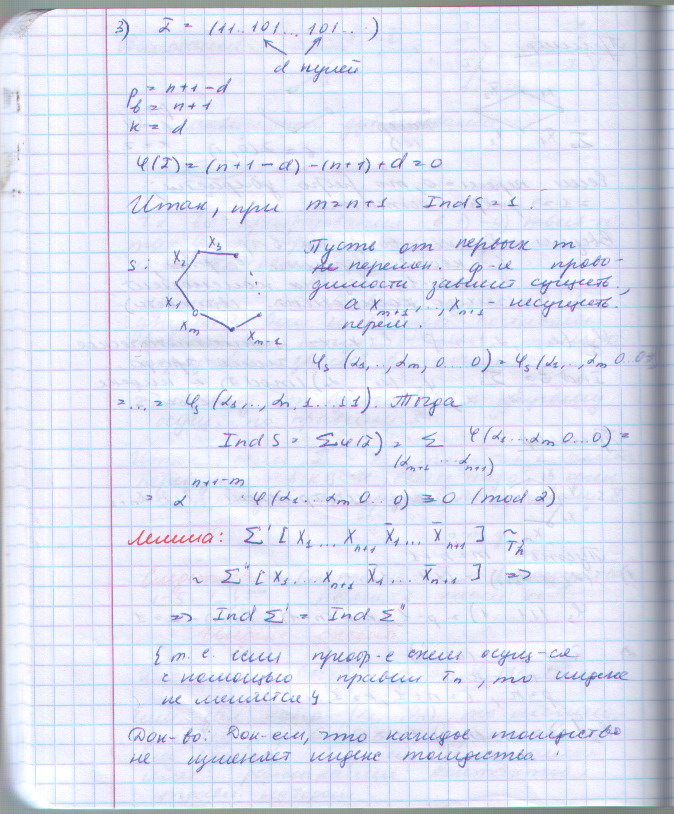 3) α̃ = (11..101... 101... )
d нулей
p = n+1-d
в = n+1
к = d
φ(α̃) = (n+1-d) - (n+1) + d = 0
Итак, при m = n+1 Ind S = 1.
S: X₁ X₂ X₃ Xₘ Xₘ₋₁
Пусть от первых m
перемен. ф-я прово-
димости зависит существ.,
а Xₘ₊₁,..., Xₙ₊₁ - несуществ.
перем.
φₛ (α₁,.., αₘ, 0...0) = φₛ (α₁,.., αₘ 0..01)
=...= φₛ (α₁,.., αₘ 1...11). Тогда
Ind S = Σφ(α̃) = Σ φ(α₁...αₘ 0...0) =
(αₘ₊₁ ... αₙ₊₁)
= 2ⁿ⁺¹⁻ᵐ · φ(α₁...αₘ 0...0) ≡ 0 (mod 2)
Лемма: Σ' [X₁...Xₙ₊₁ X̄₁... X̄ₙ₊₁] ~ Tₙ
~ Σ'' [X₁...Xₙ₊₁ X̄₁... X̄ₙ₊₁] =>
=> Ind Σ' = Ind Σ''
{т.е. если преобр-е схем осущ-ся
с помощью правил Tₙ, то индекс
не меняется}
Док-во: Док-ем, что каждое тождество
не изменяет индекс тождества: